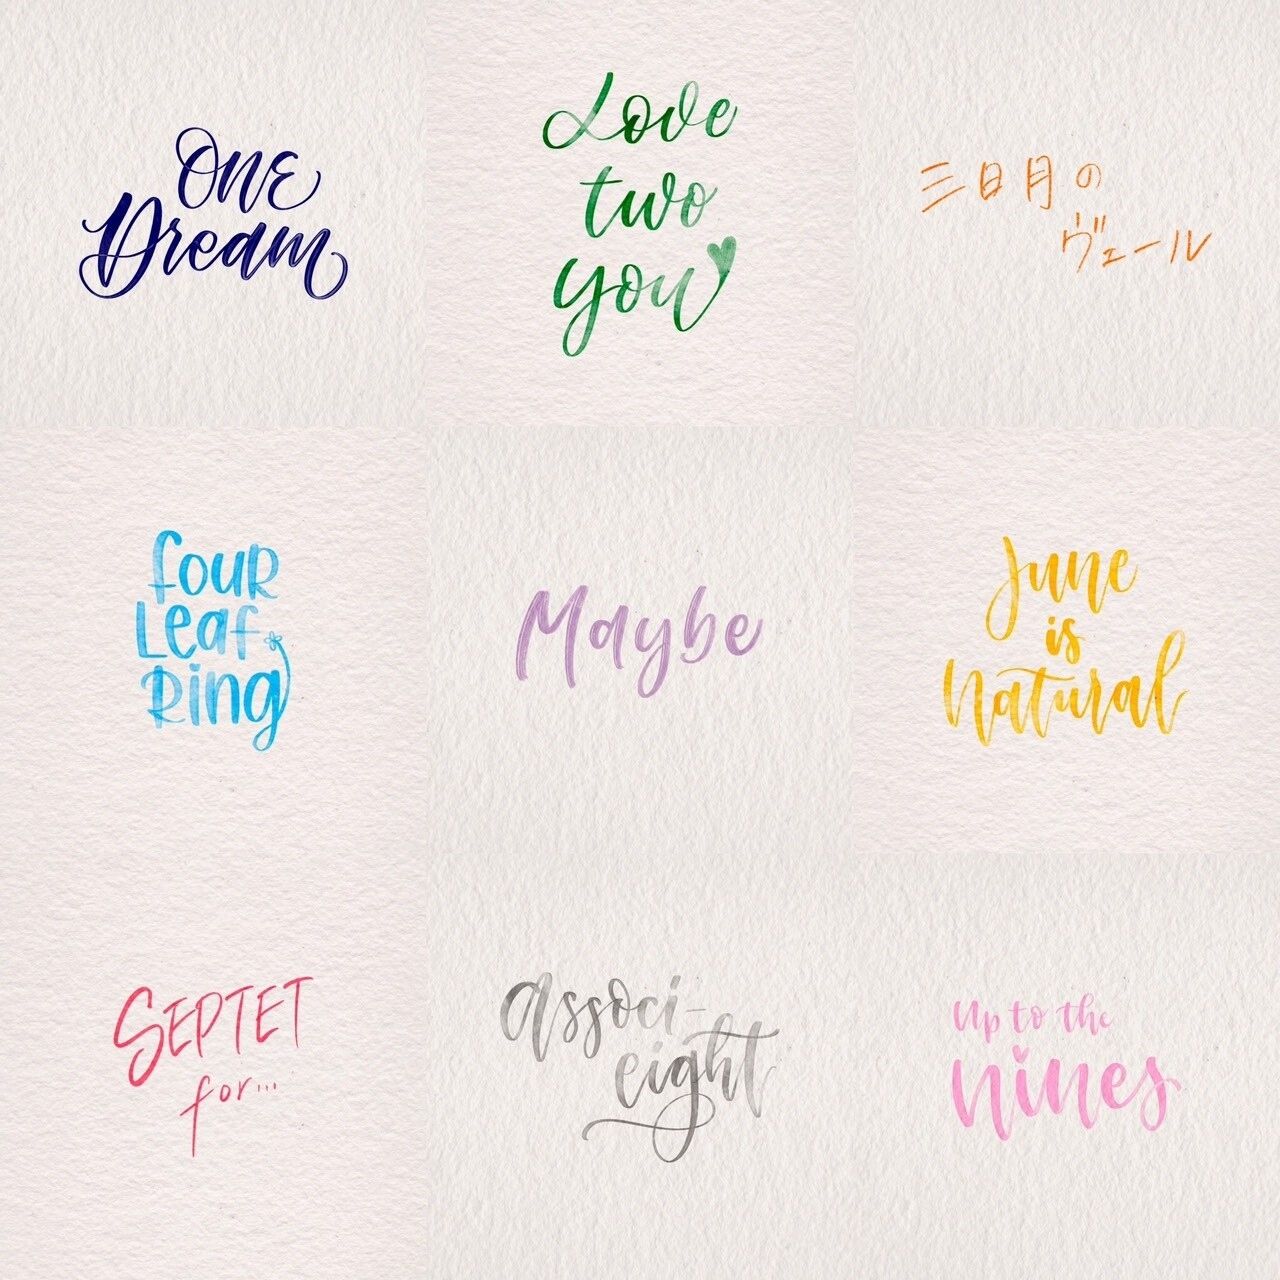 One
Dream
Love
two
you
三日月の
ヴェール
four
Leaf
Ring
Maybe
June
is
Natural
SEPTET
for...
associ-
eight
Up to the
nines